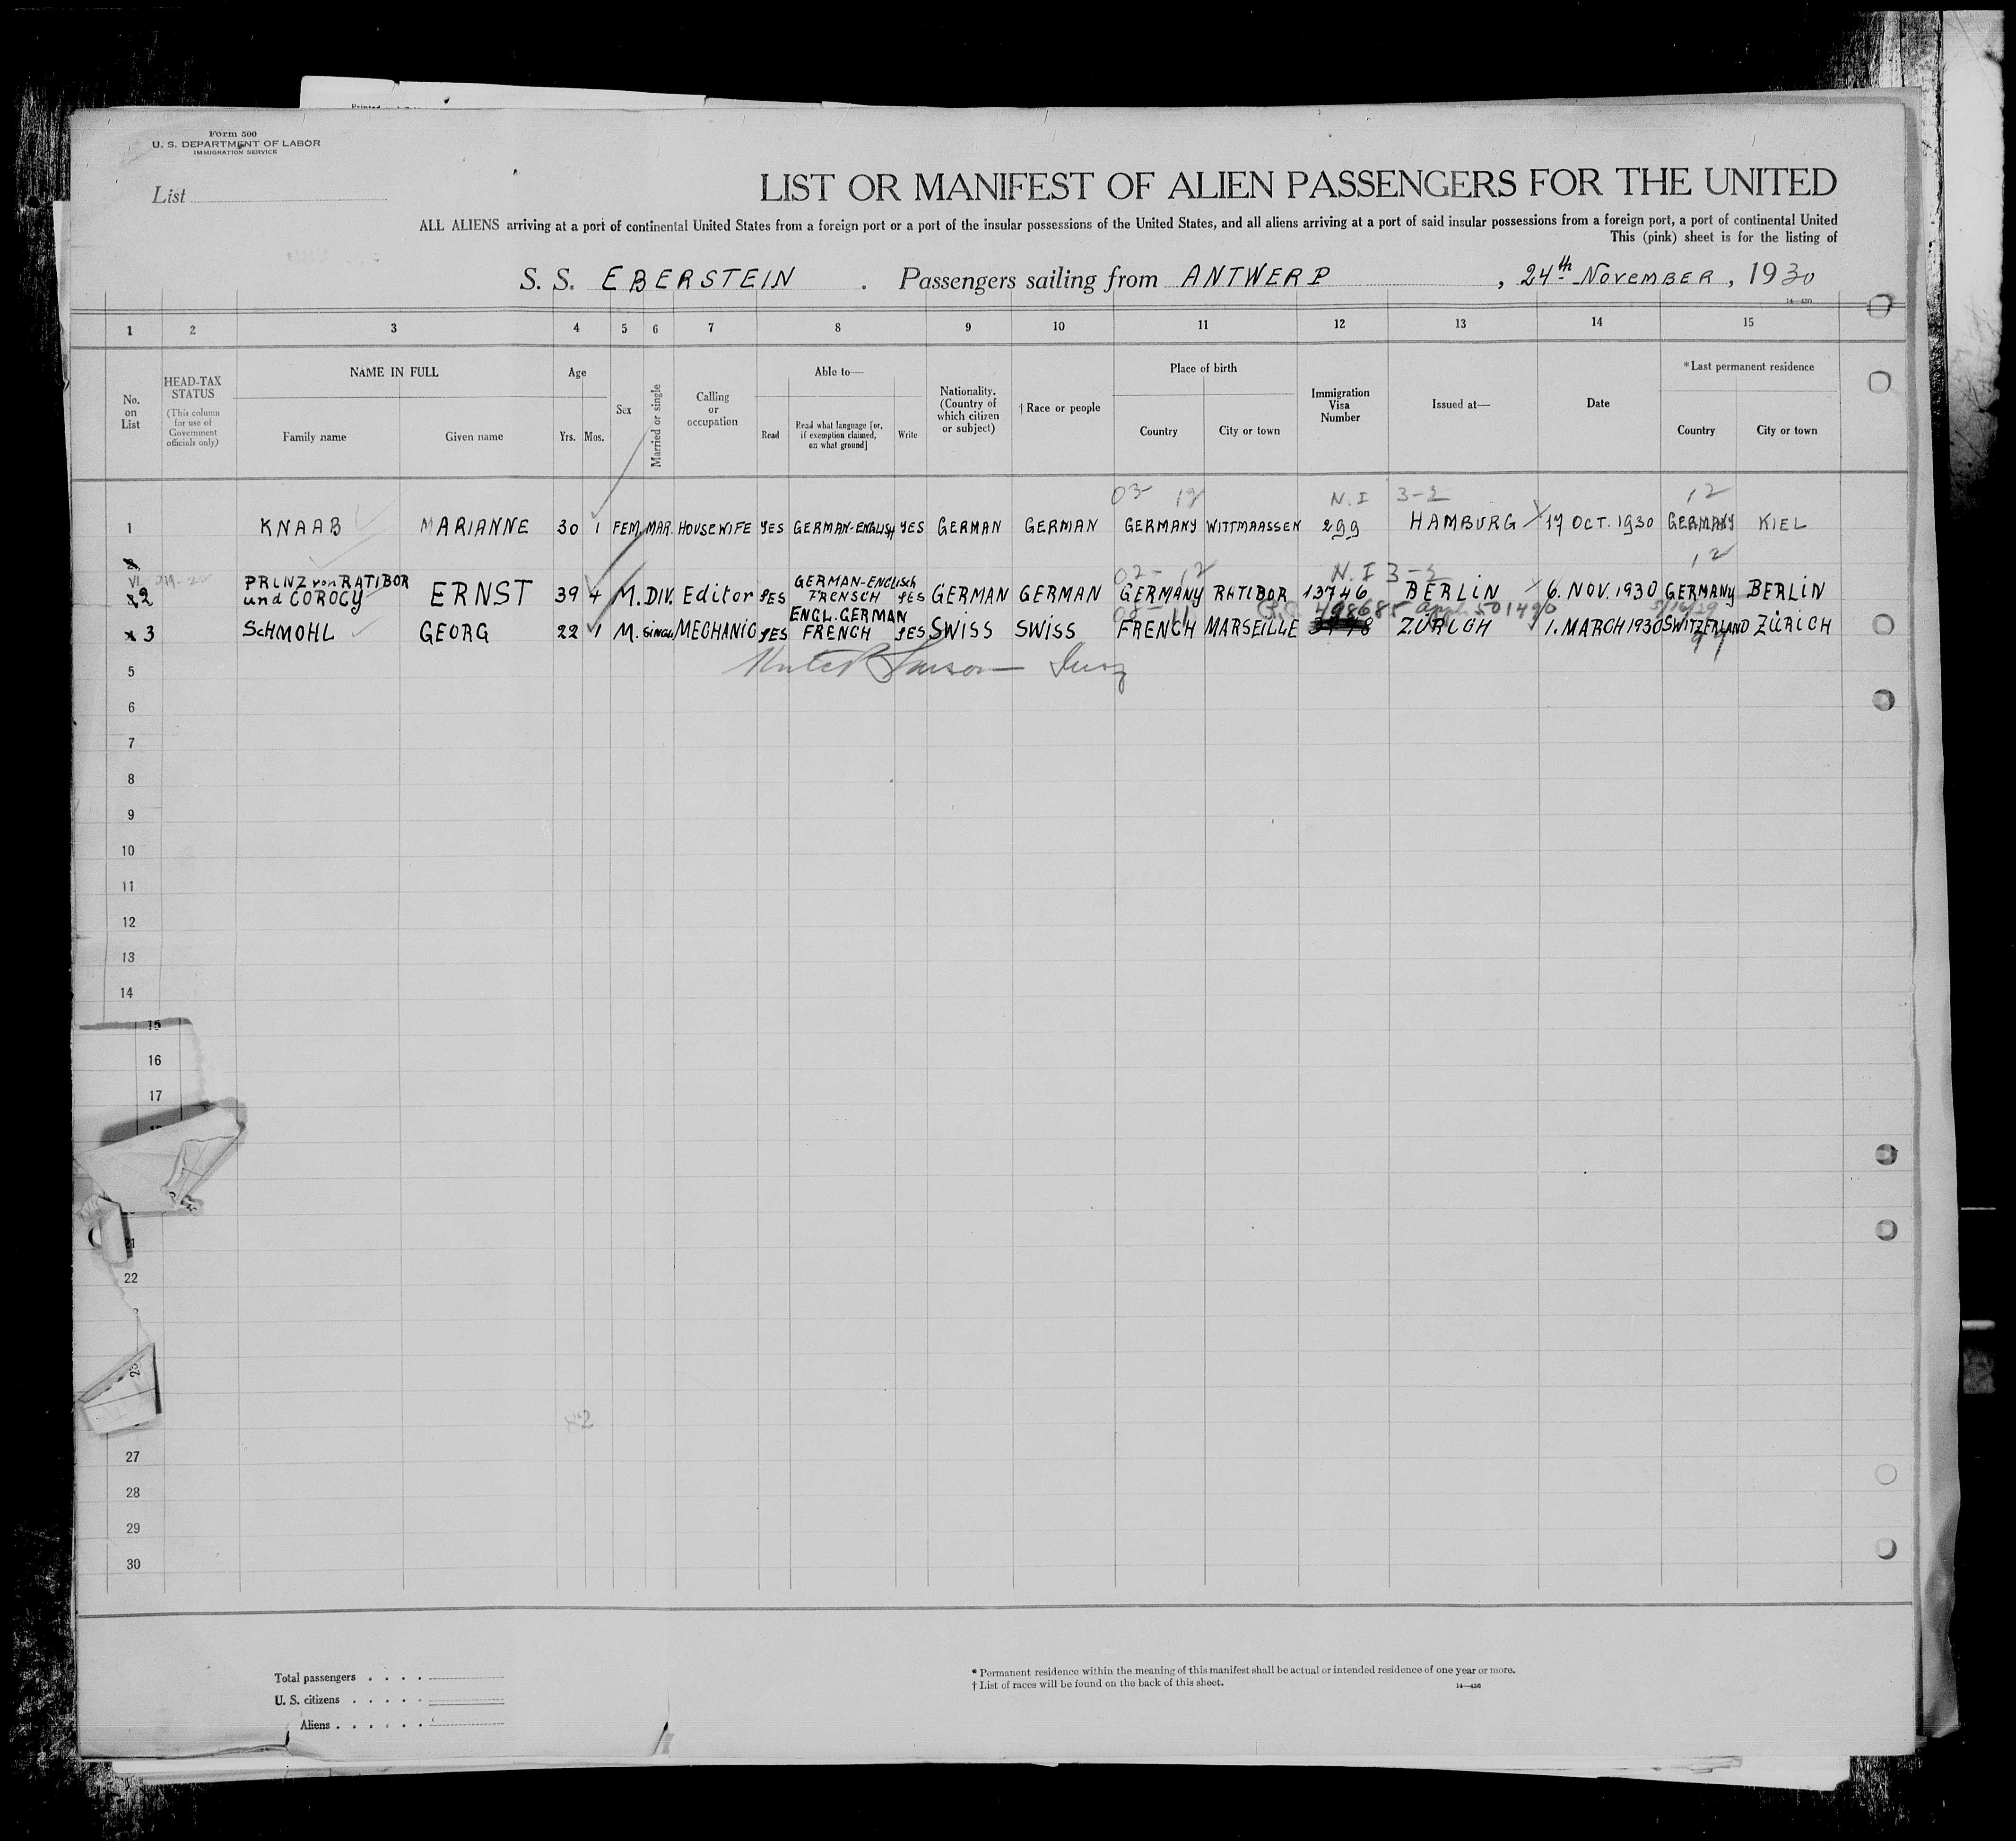 Form 500
U. S. DEPARTMENT OF LABOR
IMMIGRATION SERVICE
List
LIST OR MANIFEST OF ALIEN PASSENGERS FOR THE UNITED
ALL ALIENS arriving at a port of continental United States from a foreign port or a port of the insular possessions of the United States, and all aliens arriving at a port of said insular possessions from a foreign port, a port of continental United
This (pink) sheet is for the listing of
S. S. EBERSTEIN . Passengers sailing from ANTWERP , 24th November, 1930
14—430
1 2 3 4 5 6 7 8 9 10 11 12 13 14 15
No. on List
HEAD-TAX STATUS
(This column for use of Government officials only)
NAME IN FULL
Family name
Given name
Age
Yrs.
Mos.
Sex
Married or single
Calling or occupation
Able to—
Read
Read what language [or, if exemption claimed, on what ground]
Write
Nationality. (Country of which citizen or subject)
† Race or people
Place of birth
Country
City or town
Immigration Visa Number
Issued at—
Date
*Last permanent residence
Country
City or town
03 12 N. I 3-2 12
1 KNAAB MARIANNE 30 1 FEM. MAR. HOUSEWIFE YES GERMAN-ENGLISH YES GERMAN GERMAN GERMANY WITTMAASSEN 299 HAMBURG 17 OCT. 1930 GERMANY KIEL
02 - 12 N. I 3-2 12
2 PRINZ von RATIBOR und COROCY ERNST 39 4 M. DIV. Editor YES GERMAN-ENGLisch FRENSCH YES GERMAN GERMAN GERMANY RATIBOR 13746 BERLIN 6. NOV. 1930 GERMANY BERLIN
498685 501490
3 SCHMOHL GEORG 22 1 M. SINGL. MECHANIC YES ENGL. GERMAN FRENCH YES SWISS SWISS FRENCH MARSEILLE ZÜRICH 1. MARCH 1930 SWITZERLAND ZÜRICH
5
6
7
8
9
10
11
12
13
14
15
16
17
21
22
27
28
29
30
Total passengers
U. S. citizens
Aliens
* Permanent residence within the meaning of this manifest shall be actual or intended residence of one year or more.
† List of races will be found on the back of this sheet.
14—430